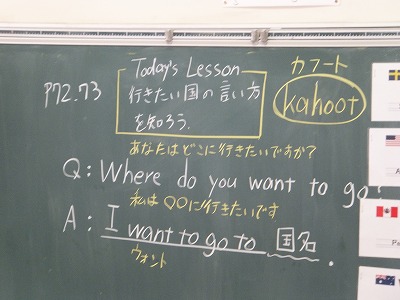 P72.73
Today's Lesson
行きたい国の言い方
を知ろう.
カフート
kahoot
あなたはどこに行きたいですか?
Q: Where do you want to go?
私は〇〇に行きたいです
A: I want to go to 国名.
ウォント